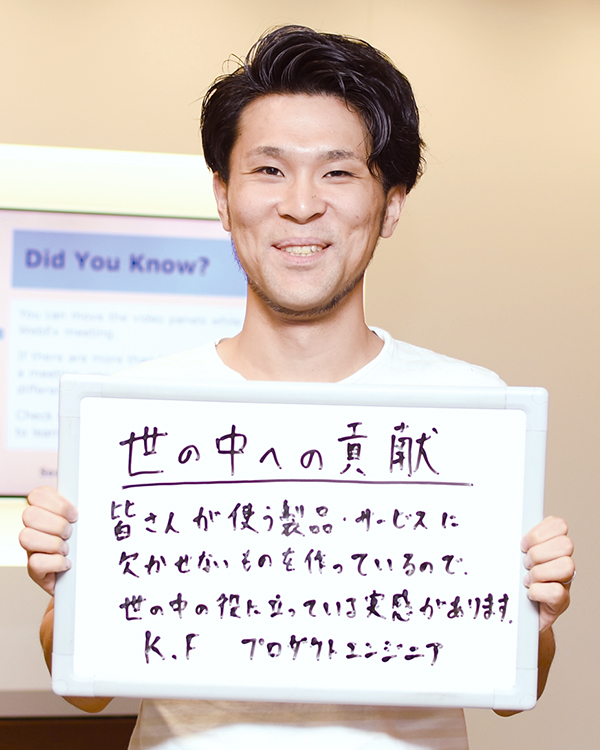 Did You Know?
You can move the video panels while
WebEx meeting.
If there are more the
a meeting
differe
Check
to lear
世の中への貢献
皆さんが使う製品・サービスに
欠かせないものを作っているので、
世の中の役に立っている実感があります。
K.F プロダクトエンジニア